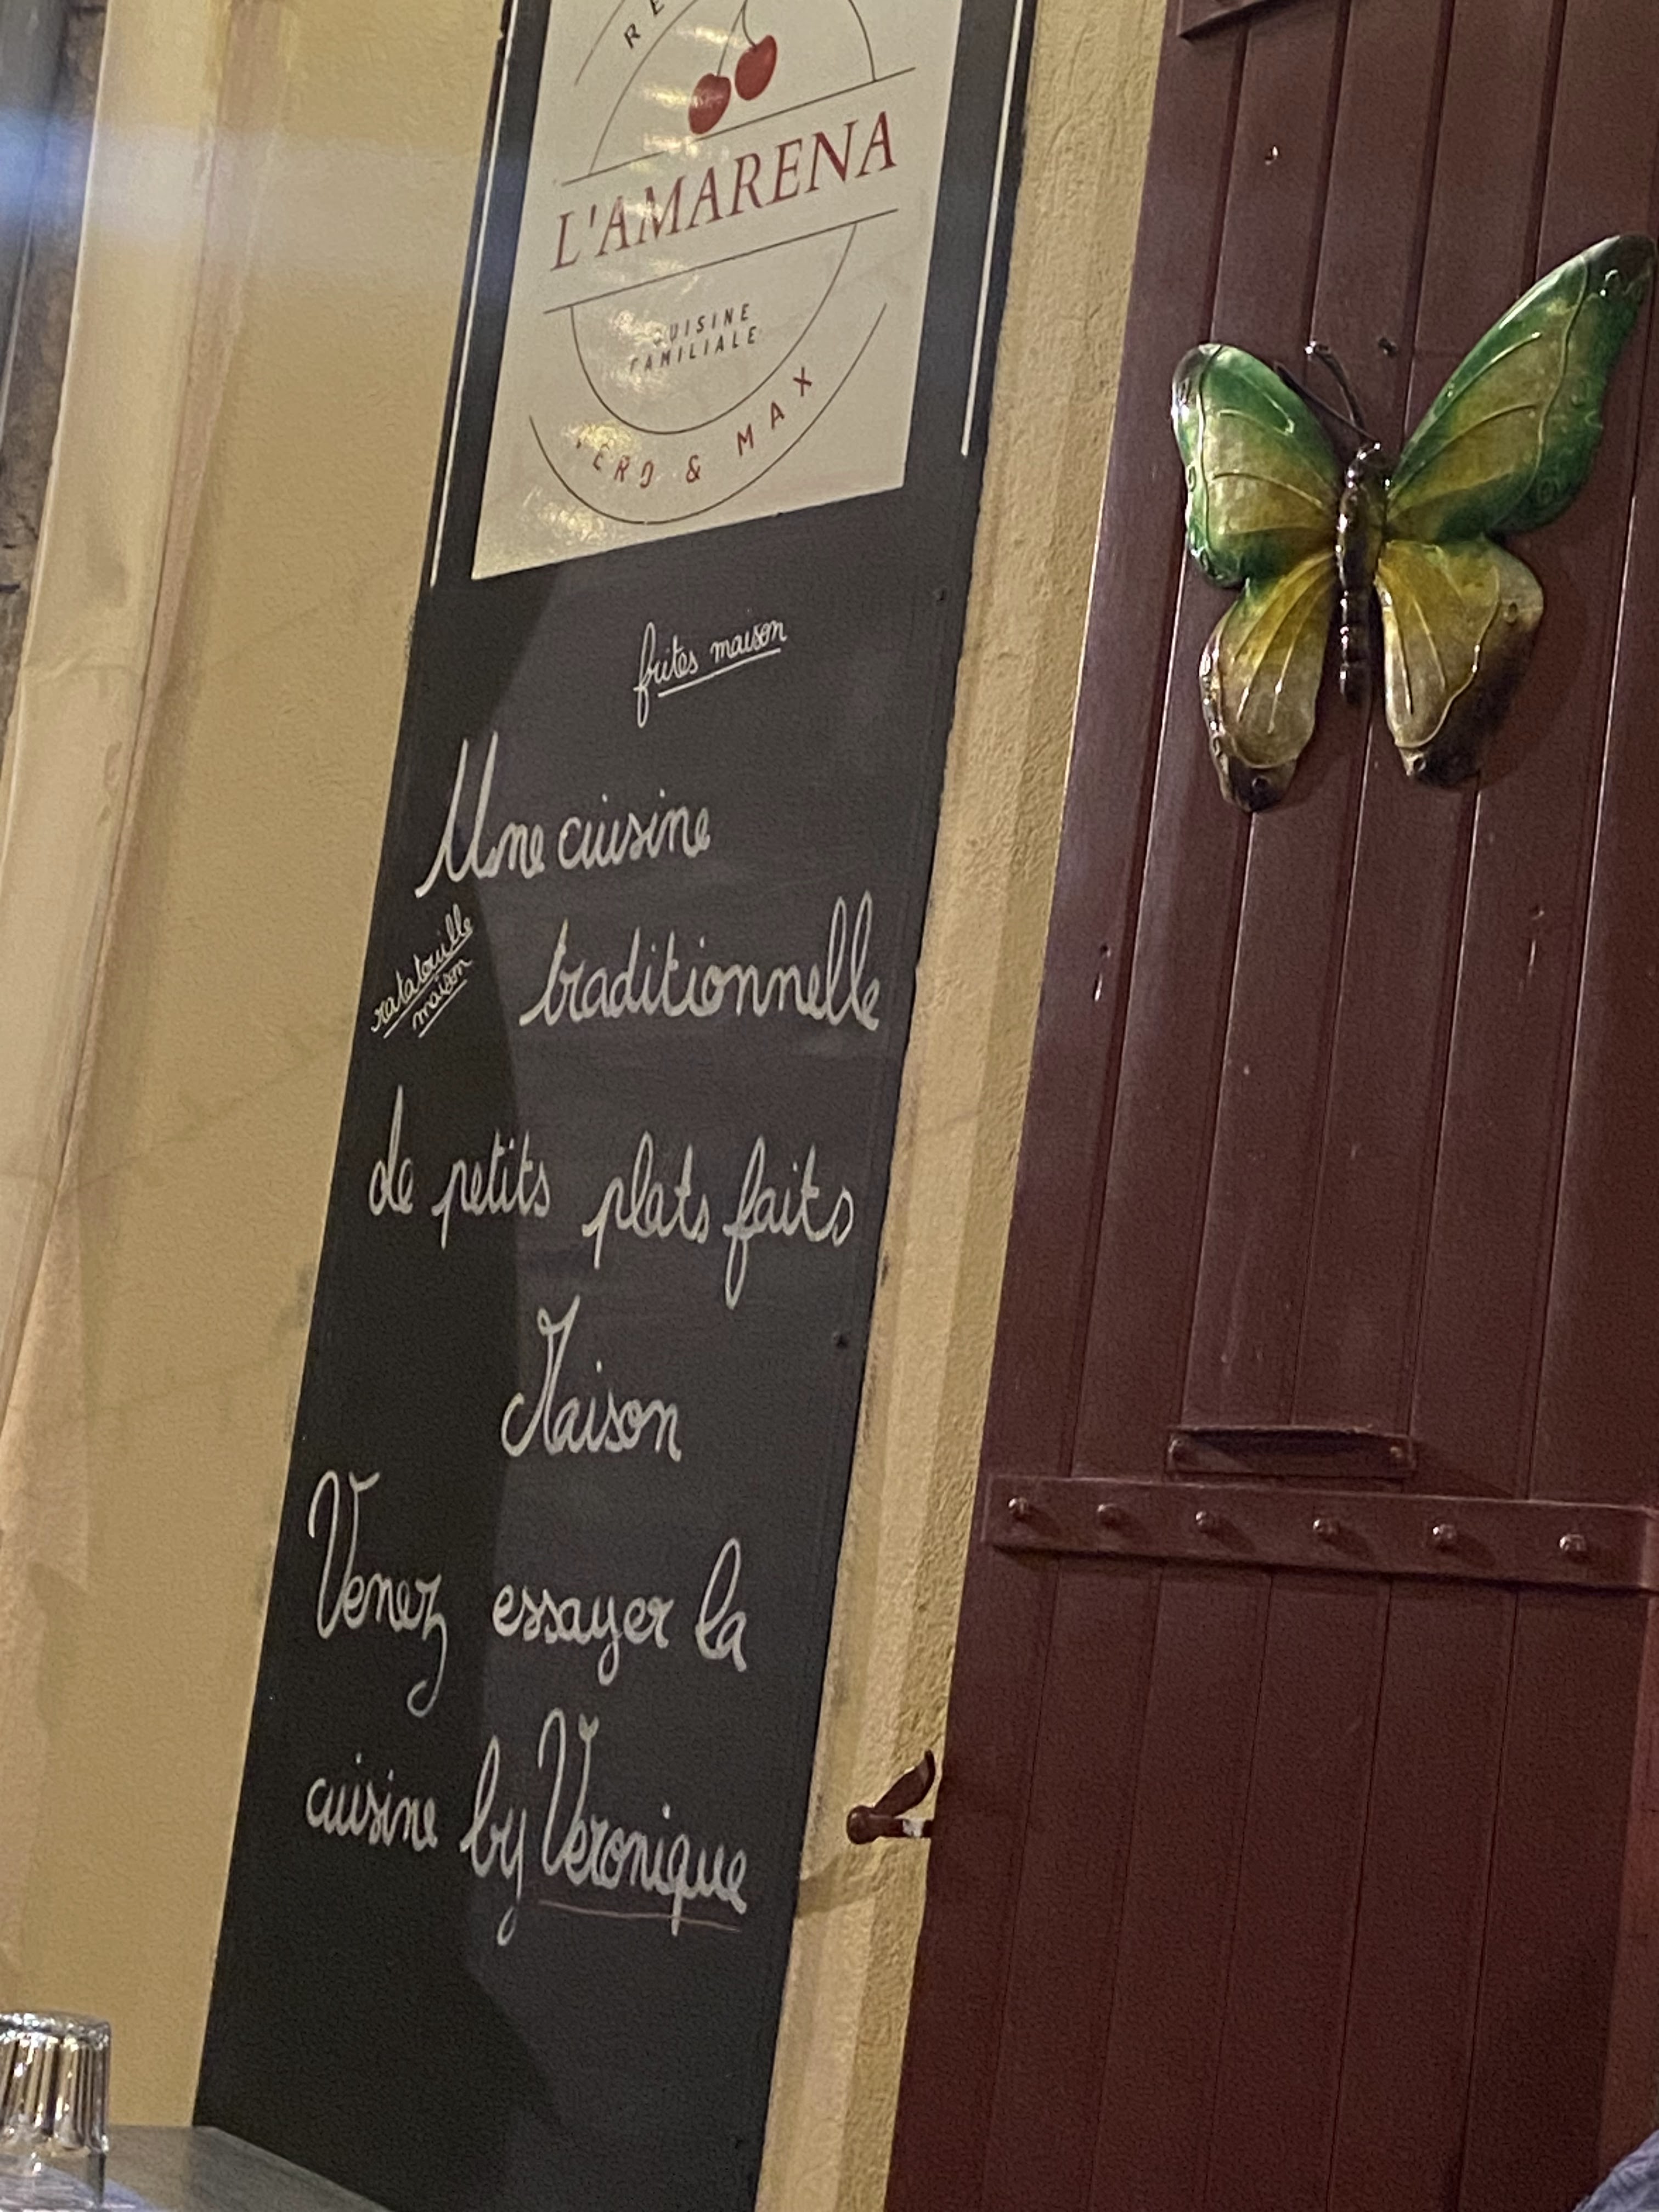 L'AMARENA
CUISINE
FAMILIALE
VERO & MAX
frites maison
Une cuisine
traditionnelle
ratatouille
maison
de petits plats faits
Maison
Venez essayer la
cuisine by Veronique